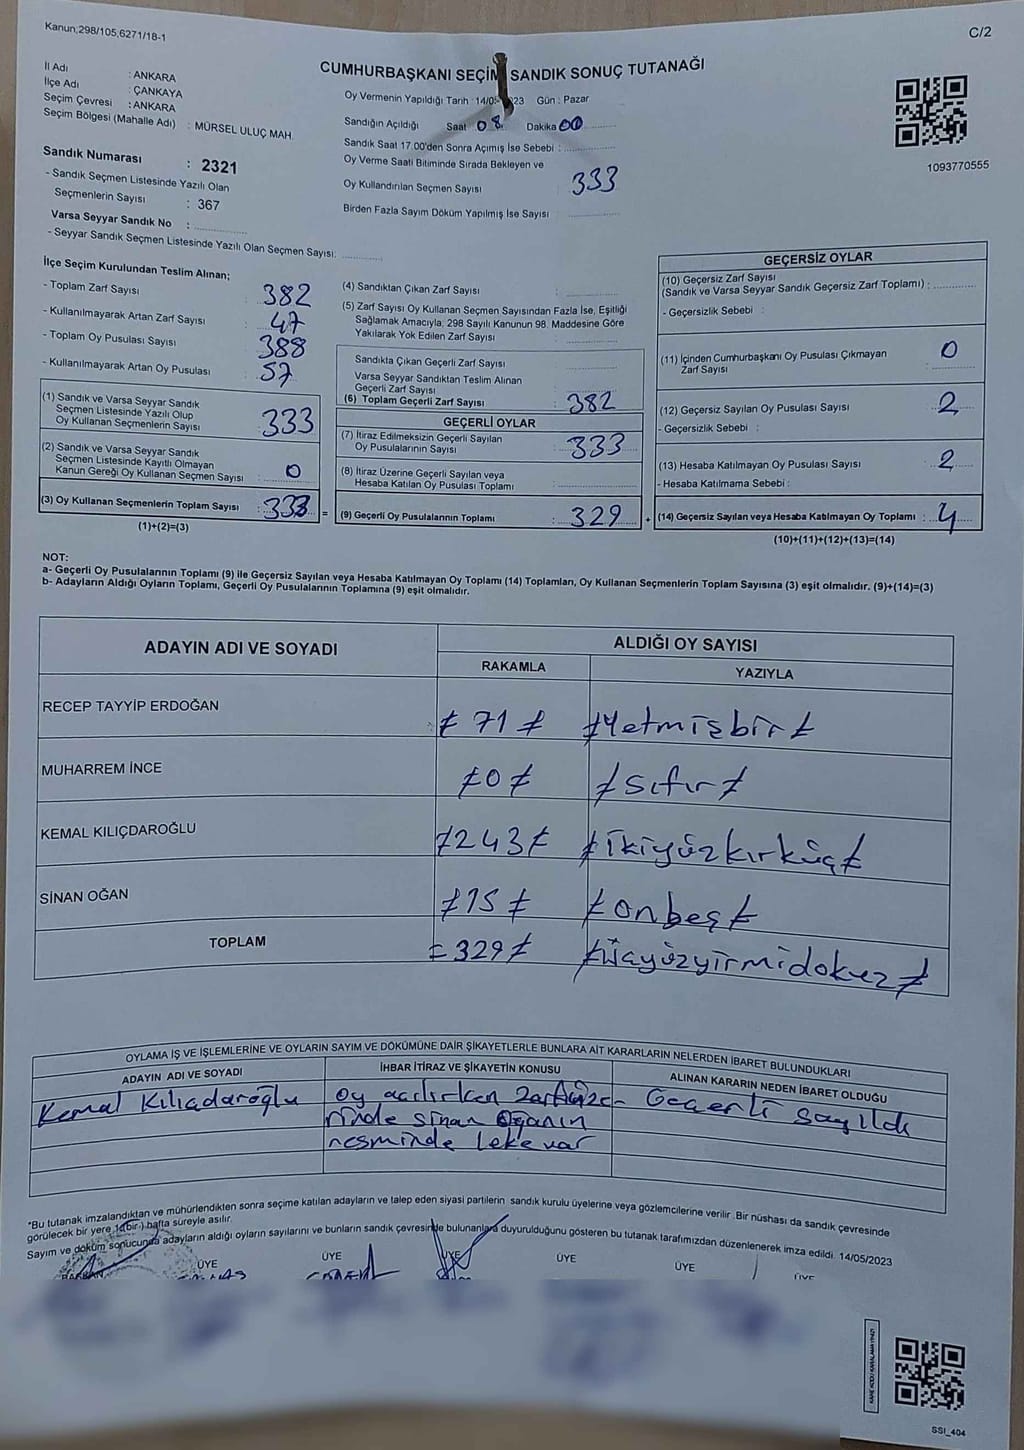 Kanun;298/105,6271/18-1
C/2
CUMHURBAŞKANI SEÇİM SANDIK SONUÇ TUTANAĞI
İl Adı : ANKARA
İlçe Adı : ÇANKAYA
Seçim Çevresi : ANKARA
Seçim Bölgesi (Mahalle Adı) : MÜRSEL ULUÇ MAH.
Sandık Numarası : 2321
- Sandık Seçmen Listesinde Yazılı Olan
Seçmenlerin Sayısı : 367
Varsa Seyyar Sandık No :
- Seyyar Sandık Seçmen Listesinde Yazılı Olan Seçmen Sayısı:
Oy Vermenin Yapıldığı Tarih : 14/05 23 Gün : Pazar
Sandığın Açıldığı Saat 08 Dakika 00
Sandık Saat 17.00'den Sonra Açımış İse Sebebi :
Oy Verme Saati Bitiminde Sırada Bekleyen ve
Oy Kullandırılan Seçmen Sayısı 333
Birden Fazla Sayım Döküm Yapılmış İse Sayısı
1093770555
İlçe Seçim Kurulundan Teslim Alınan;
- Toplam Zarf Sayısı : 382
- Kullanılmayarak Artan Zarf Sayısı : 47
- Toplam Oy Pusulası Sayısı : 388
- Kullanılmayarak Artan Oy Pusulası : 57
(1) Sandık ve Varsa Seyyar Sandık
Seçmen Listesinde Yazılı Olup
Oy Kullanan Seçmenlerin Sayısı : 333
(2) Sandık ve Varsa Seyyar Sandık
Seçmen Listesinde Kayıtlı Olmayan
Kanun Gereği Oy Kullanan Seçmen Sayısı : 0
(3) Oy Kullanan Seçmenlerin Toplam Sayısı : 333 =
(1)+(2)=(3)
(4) Sandıktan Çıkan Zarf Sayısı :
(5) Zarf Sayısı Oy Kullanan Seçmen Sayısından Fazla İse, Eşitliği
Sağlamak Amacıyla; 298 Sayılı Kanunun 98. Maddesine Göre
Yakılarak Yok Edilen Zarf Sayısı :
Sandıkta Çıkan Geçerli Zarf Sayısı :
Varsa Seyyar Sandıktan Teslim Alınan
Geçerli Zarf Sayısı :
(6) Toplam Geçerli Zarf Sayısı : 382
GEÇERLİ OYLAR
(7) İtiraz Edilmeksizin Geçerli Sayılan
Oy Pusulalarının Sayısı : 333
(8) İtiraz Üzerine Geçerli Sayılan veya
Hesaba Katılan Oy Pusulası Toplamı :
(9) Geçerli Oy Pusulalarının Toplamı : 329 +
GEÇERSİZ OYLAR
(10) Geçersiz Zarf Sayısı
(Sandık ve Varsa Seyyar Sandık Geçersiz Zarf Toplamı) :
- Geçersizlik Sebebi :
(11) İçinden Cumhurbaşkanı Oy Pusulası Çıkmayan
Zarf Sayısı : 0
(12) Geçersiz Sayılan Oy Pusulası Sayısı : 2
- Geçersizlik Sebebi :
(13) Hesaba Katılmayan Oy Pusulası Sayısı : 2
- Hesaba Katılmama Sebebi :
(14) Geçersiz Sayılan veya Hesaba Katılmayan Oy Toplamı : 4
(10)+(11)+(12)+(13)=(14)
NOT:
a- Geçerli Oy Pusulalarının Toplamı (9) ile Geçersiz Sayılan veya Hesaba Katılmayan Oy Toplamı (14) Toplamları, Oy Kullanan Seçmenlerin Toplam Sayısına (3) eşit olmalıdır. (9)+(14)=(3)
b- Adayların Aldığı Oyların Toplamı, Geçerli Oy Pusulalarının Toplamına (9) eşit olmalıdır.
ADAYIN ADI VE SOYADI
ALDIĞI OY SAYISI
RAKAMLA YAZIYLA
RECEP TAYYİP ERDOĞAN ≠ 71 ≠ ≠ Yetmişbir ≠
MUHARREM İNCE ≠ 0 ≠ ≠ Sıfır ≠
KEMAL KILIÇDAROĞLU ≠ 243 ≠ ≠ ikiyüzkırküç ≠
SİNAN OĞAN ≠ 15 ≠ ≠ onbeş ≠
TOPLAM = 329 ≠ ≠ üçyüzyirmidokuz ≠
OYLAMA İŞ VE İŞLEMLERİNE VE OYLARIN SAYIM VE DÖKÜMÜNE DAİR ŞİKAYETLERLE BUNLARA AİT KARARLARIN NELERDEN İBARET BULUNDUKLARI
ADAYIN ADI VE SOYADI İHBAR İTİRAZ VE ŞİKAYETİN KONUSU ALINAN KARARIN NEDEN İBARET OLDUĞU
Kemal Kılıçdaroğlu Oy açılırken zarf üze- Geçerli sayıldı
rinde Sinan Oğanın
resminde leke var
*Bu tutanak imzalandıktan ve mühürlendikten sonra seçime katılan adayların ve talep eden siyasi partilerin sandık kurulu üyelerine veya gözlemcilerine verilir. Bir nüshası da sandık çevresinde
görülecek bir yere 1 (bir ) hafta süreyle asılır.
Sayım ve döküm sonucunda adayların aldığı oyların sayılarını ve bunların sandık çevresinde bulunanlara duyurulduğunu gösteren bu tutanak tarafımızdan düzenlenerek imza edildi. 14/05/2023
BAŞKAN ÜYE ÜYE ÜYE ÜYE ÜYE ÜYE
SSI_404